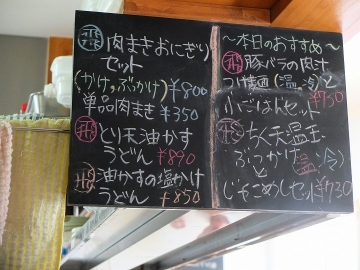 肉まきおにぎり
セット
(かけ、ぶっかけ) ¥800
単品肉まき ¥350
とり天油かす
うどん ¥890
油かすの塩かけ
うどん ¥850
～本日のおすすめ～
豚バラの肉汁
つけ麺(温、冷)と
小ごはんセット ¥750
ちく天温玉
ぶっかけ(温、冷)
と
じゃこめしセット ¥730